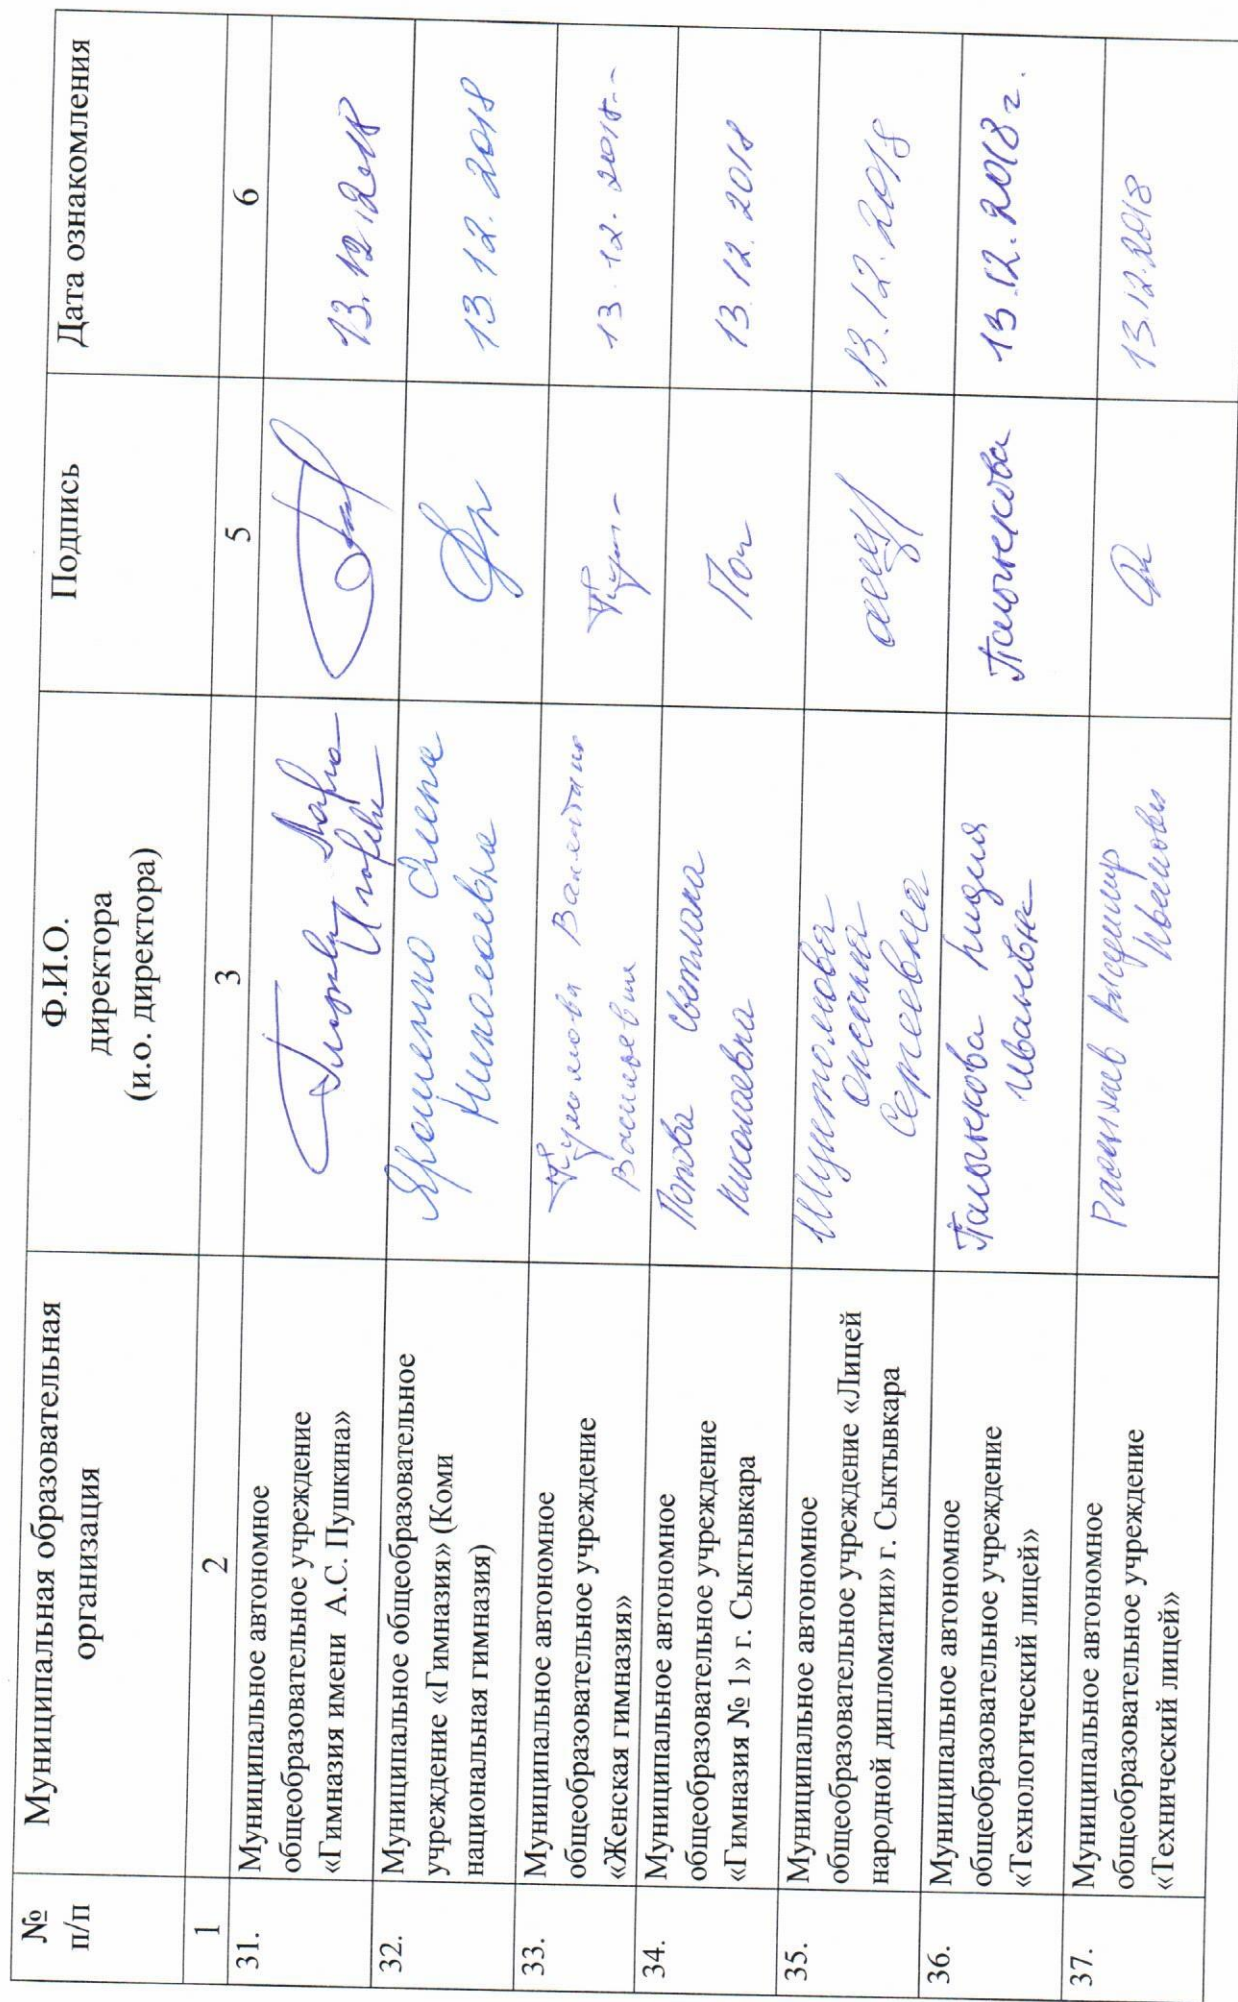 №
п/п
Муниципальная образовательная
организация
Ф.И.О.
директора
(и.о. директора)
Подпись
Дата ознакомления
1
2
3
5
6
31.
Муниципальное автономное
общеобразовательное учреждение
«Гимназия имени А.С. Пушкина»
13.12.2018
32.
Муниципальное общеобразовательное
учреждение «Гимназия» (Коми
национальная гимназия)
Ярошенко Елена
Николаевна
13 12. 2018
33.
Муниципальное автономное
общеобразовательное учреждение
«Женская гимназия»
Валентина
Васильевна
13.12.2018
34.
Муниципальное автономное
общеобразовательное учреждение
«Гимназия № 1» г. Сыктывкара
Попова Светлана
Николаевна
Поп
13.12. 2018
35.
Муниципальное автономное
общеобразовательное учреждение «Лицей
народной дипломатии» г. Сыктывкара
Шучалова
Оксана
Сергеевна
13.12.2018
36.
Муниципальное автономное
общеобразовательное учреждение
«Технологический лицей»
Палькова Лидия
Ивановна
13.12.2018г.
37.
Муниципальное автономное
общеобразовательное учреждение
«Технический лицей»
Владимир
Иванович
13.12.2018